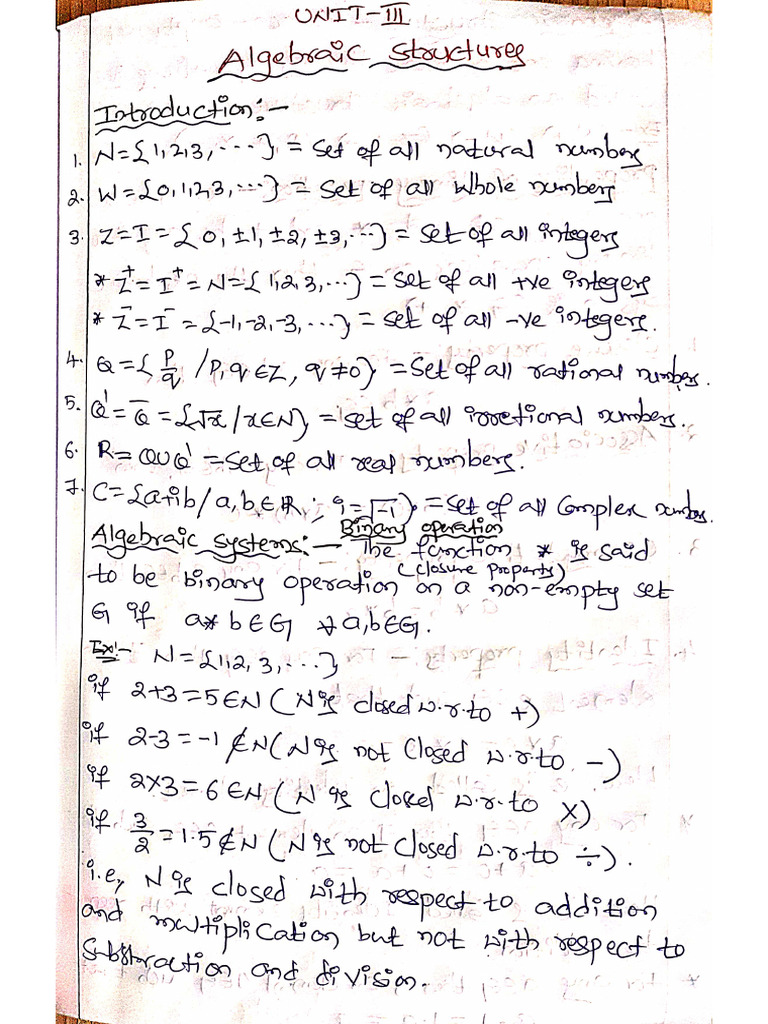 UNIT-III
Algebraic Structures
Introduction:-
1. N={1,2,3,....} = Set of all natural numbers
2. W={0,1,2,3,....} = Set of all Whole numbers
3. Z=I={0,±1,±2,±3,...} = Set of all integers
* Z⁺=I⁺=N={1,2,3,...} = Set of all +ve integers
* Z⁻=I⁻={-1,-2,-3,...} = Set of all -ve integers.
4. Q={p/q /p,q∈Z, q≠0} = Set of all rational numbers.
5. Q'=Q̅={√x/x∈N} = Set of all irretional numbers.
6. R=Q∪Q' = Set of all real numbers.
7. C={a+ib/a,b∈R; i=√-1} = Set of all Complex numbers.
Binary operation
Algebraic systems:- The function * is said
(closure property)
to be binary operation on a non-empty set
G if a*b∈G ∀a,b∈G.
Ex:- N={1,2,3,...}
if 2+3=5∈N (N is closed w.r.to +)
if 2-3=-1∉N (N is not closed w.r.to -)
if 2×3=6∈N (N is closed w.r.to ×)
if 3/2=1.5∉N (N is not closed w.r.to ÷).
i.e, N is closed with respect to addition
and multiplication but not with respect to
Substraction and division.